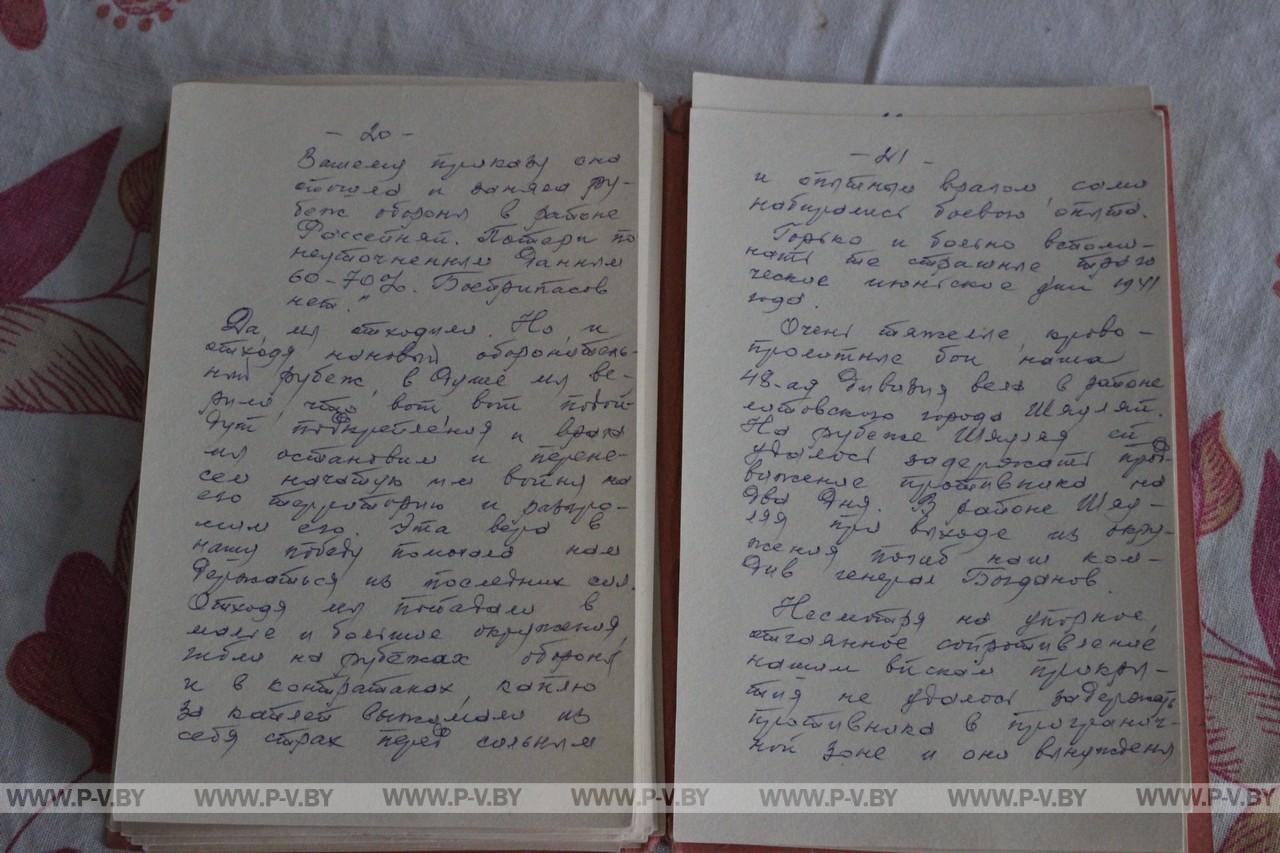 - 20 -
Вашему приказу она
отошла и заняла ру-
беж обороны в районе
Россейняй. Потери по
неуточненным данным
60-70%. Боеприпасов
нет."
Да, мы отходили. Но и
отходя на новый оборонитель-
ный рубеж, в душе мы ве-
рили, что вот вот подой-
дут подкрепления и врага
мы остановим и перене-
сем начатую им войну на
его территорию и разгро-
мим его. Эта вера в
нашу победу помогала нам
держаться из последних сил.
Отходя мы попадали в
малые и большие окружения,
жили на рубежах обороны
и в контратаках, каплю
за каплей выжимали из
себя страх перед сильным
- 21 -
и опытным врагом сами
набирались боевого опыта.
Горько и больно вспоми-
нать те страшные траги
ческие июньские дни 1941
года.
Очень тяжелые крово-
пролитные бои наша
48-ая дивизия вела в районе
литовского города Шяуляй.
На рубеже Шяуляя ей
удалось задержать прод-
вижение противника на
два дня. В районе Шяу-
ляя при выходе из окру-
жения погиб наш ком-
див генерал Богданов.
Несмотря на упорное,
отчаянное сопротивление
нашим войскам прикры-
тия не удалось задержать
противника в погранич-
ной зоне и они вынуждены
WWW.P-V.BY WWW.P-V.BY WWW.P-V.BY WWW.P-V.BY WWW.P-V.BY WWW.P-V.BY WWW.P-V.BY